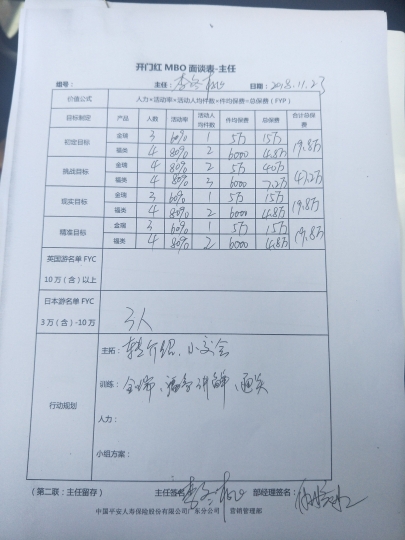 开门红 MBO 面谈表-主任
组号： 主任： 日期：2018.11.23
价值公式 人力×活动率×活动人均件数×件均保费=总保费（FYP）
目标制定 产品 人数 活动率 活动人均件数 件均保费 总保费 合计总保费
初定目标 金瑞 3 60% 1 5万 15万 19.8万
福类 4 80% 2 6000 4.8万
挑战目标 金瑞 4 80% 2 5万 40万 47.2万
福类 4 80% 3 6000 7.2万
现实目标 金瑞 3 60% 1 5万 15万 19.8万
福类 4 80% 2 6000 4.8万
精准目标 金瑞 3 60% 1 5万 15万 19.8万
福类 4 80% 2 6000 4.8万
英国游名单 FYC
10 万（含）以上
日本游名单 FYC
3 万（含）-10 万
3人
行动规划
主拓：转介绍、小交会
训练：金瑞、福类讲解、通关
人力：
小组方案：
（第二联：主任留存） 主任签名： 部经理签名：
中国平安人寿保险股份有限公司广东分公司 营销管理部